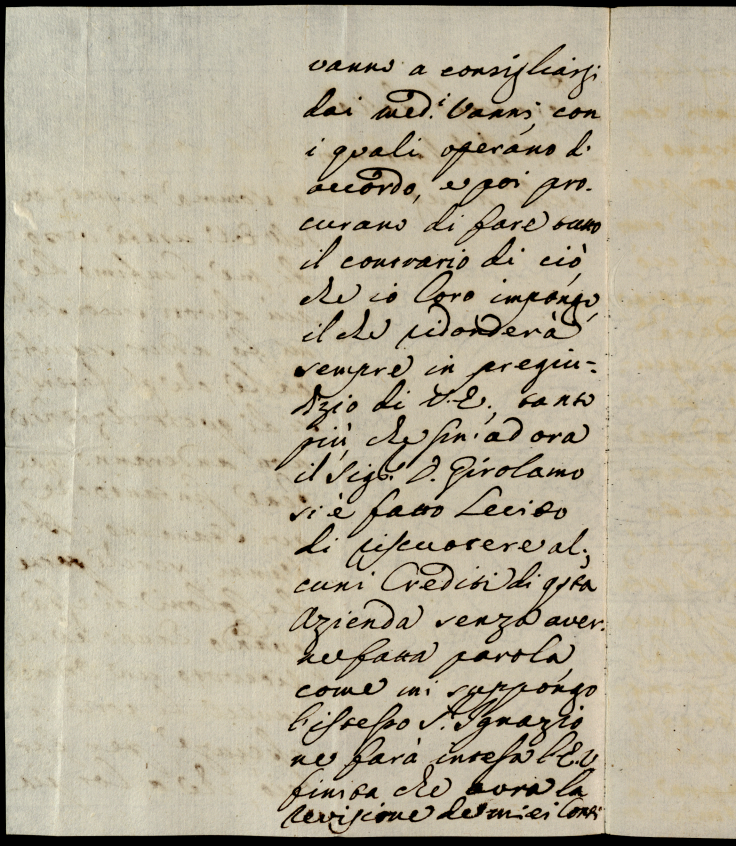 vanno a consigliarsi
dai med.i Vanni, con
i quali operano d'
accordo, e poi pro-
curano di fare tutto
il contrario di ciò
che io loro impongo,
il che ridonderà
sempre in pregiu-
dizio di V.E., tanto
più, che fin'ad ora
il Sig.r D. Girolamo
si è fatto Lecito
di riscuotere al-
cuni Crediti di q.sta
Azienda senza aver-
ne fatta parola,
come mi suppongo
l'istesso S.r Ignazio
ne farà intesa l'E.V.
finita che avrà la
revisione de miei Conti